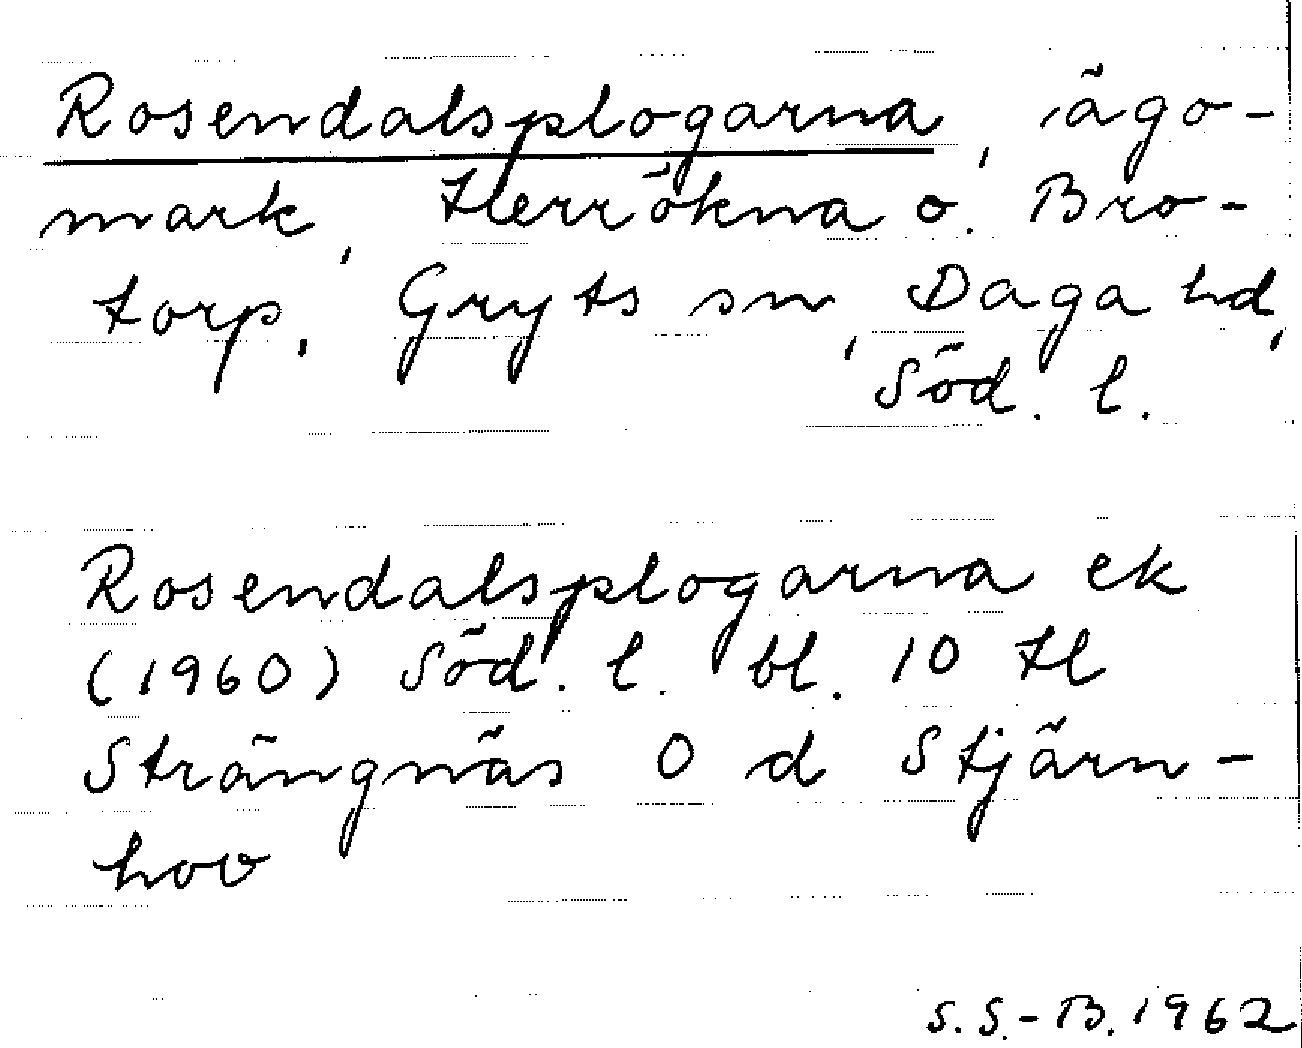 Rosendalsplogarna, ägo-
mark, Herrökna o. Bro-
torp, Gryts sn, Daga hd,
Söd. l.
Rosendalsplogarna ek
(1960) Söd. l. bl. 10 H
Strängnäs O d Stjärn-
hov
S.S.-B. 1962